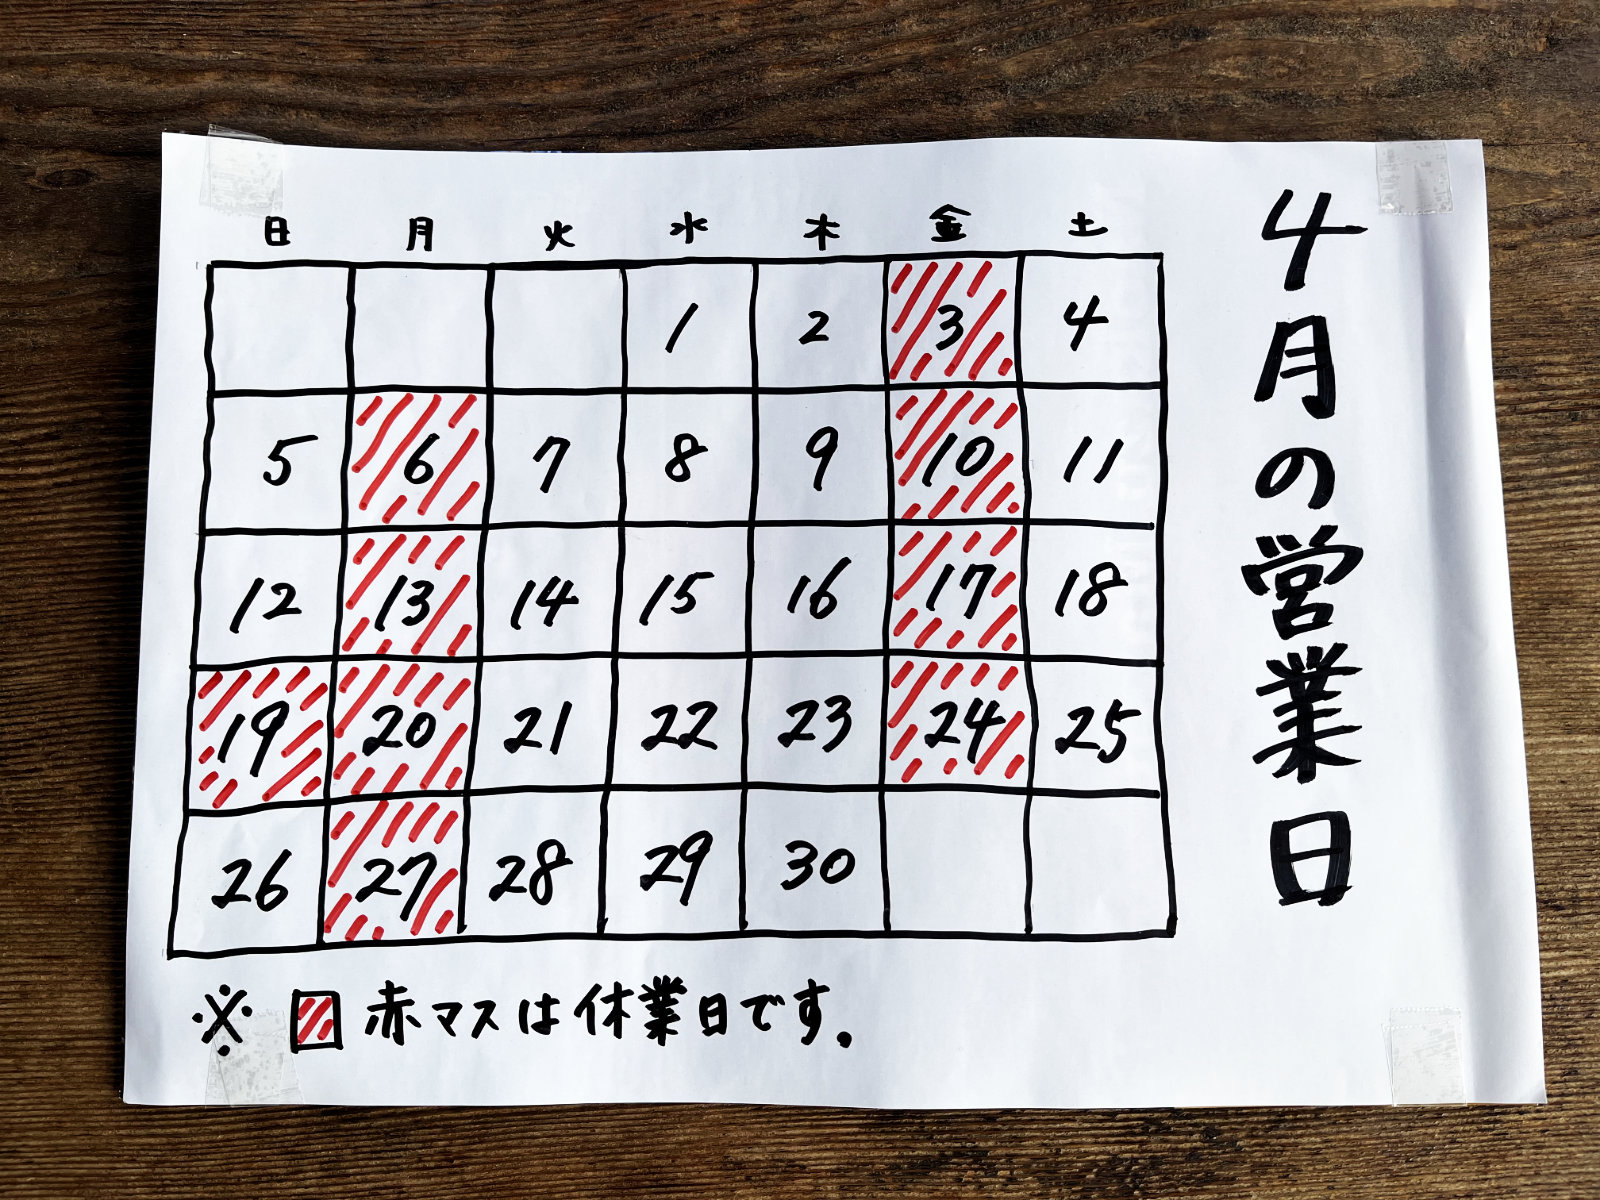 4月の営業日
日 月 火 水 木 金 土
1 2 3 4
5 6 7 8 9 10 11
12 13 14 15 16 17 18
19 20 21 22 23 24 25
26 27 28 29 30
※ 赤マスは休業日です.